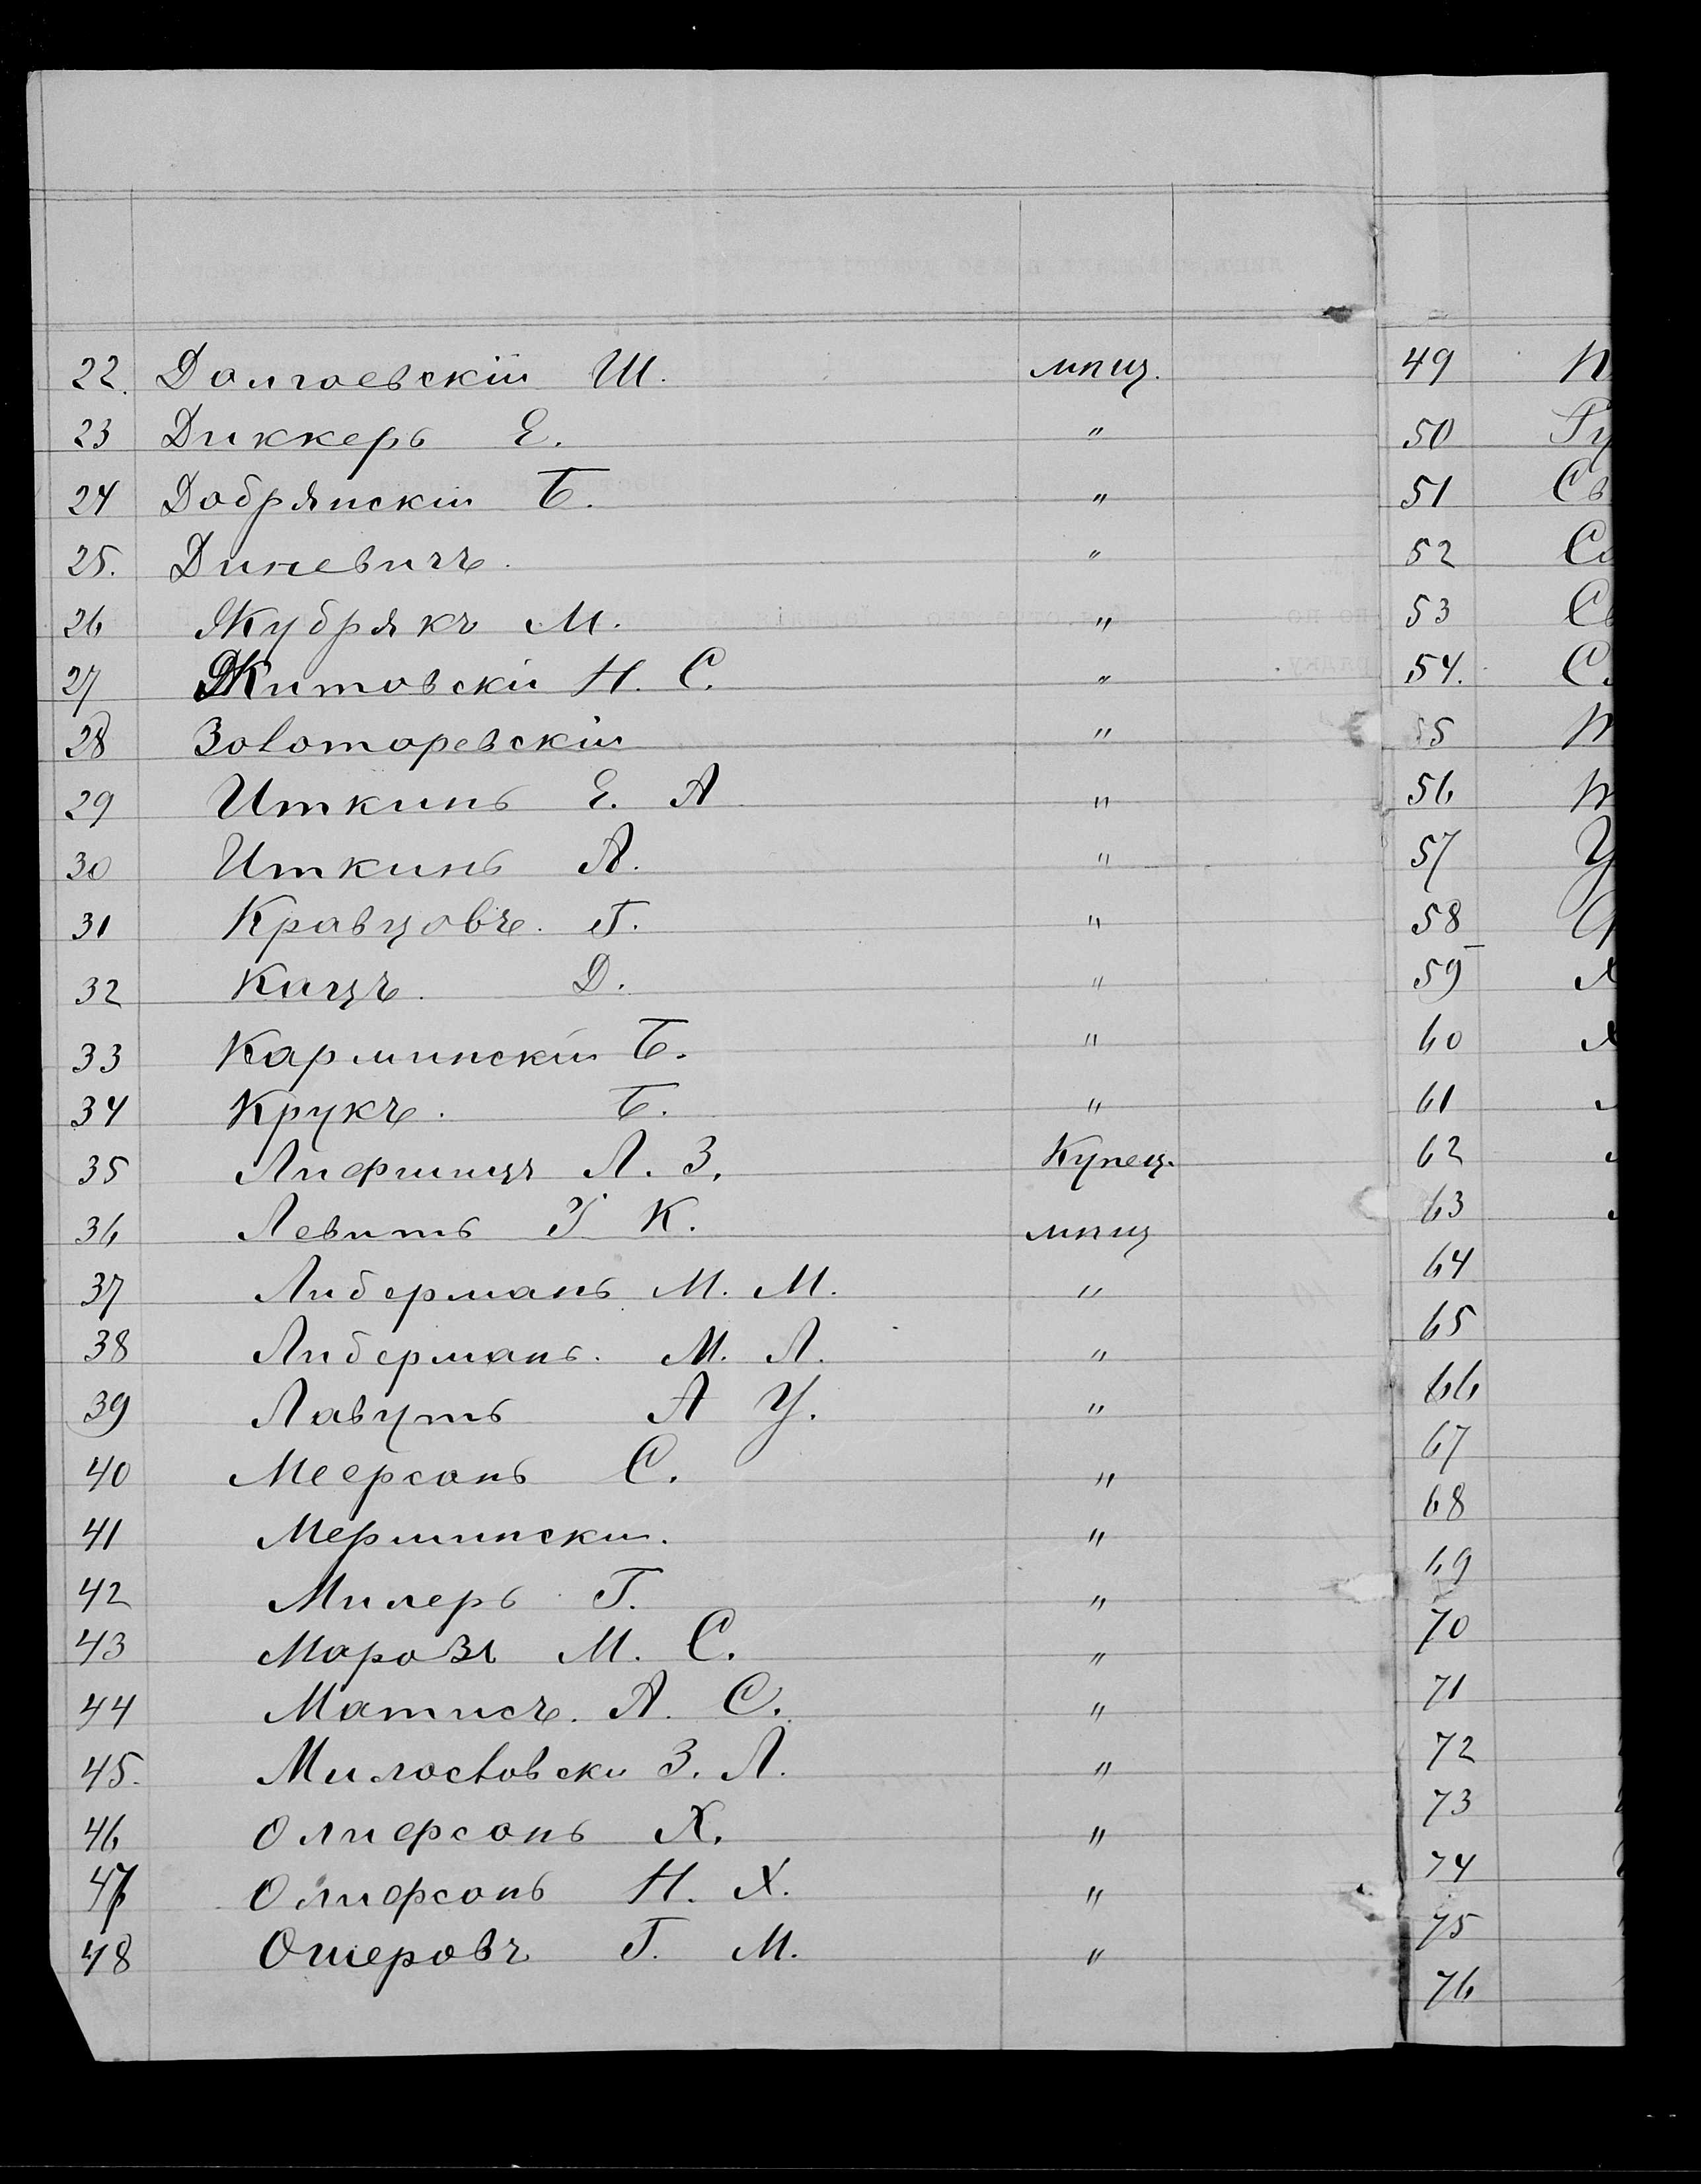 22. Долгоевскій Ш. мпщ.
23 Диккеръ Е. "
24 Добрянскій Б. "
25. Диневичъ. "
26 Жубрякъ М. "
27 Житовскі Н. С. "
28 Золоторевскій "
29 Иткинъ Е. А "
30 Иткинъ А. "
31 Кравцовъ. Г. "
32 Кацъ. Д. "
33 Карминскій Б. "
34 Крукъ. Б. "
35 Лифшицъ Л. З. Купец.
36 Левитъ К. мпщ
37 Либерманъ М. М. "
38 Либерманъ. М. Л. "
39 Лавутъ А У. "
40 Меерсонъ С. "
41 Мерминскі. "
42 Милеръ Г. "
43 Марозъ М. С. "
44 Матисъ. А. С. "
45. Милославски З. Л. "
46 Олиерсонъ Х. "
47 Олиерсонъ Н. Х. "
48 Ошеровъ Г. М. "
49
50 Гу
51 Св
52 Со
53 Св
54. С
55
56
57 У
58
59
60
61
62
63
64
65
66
67
68
69
70
71
72
73
74
75
76